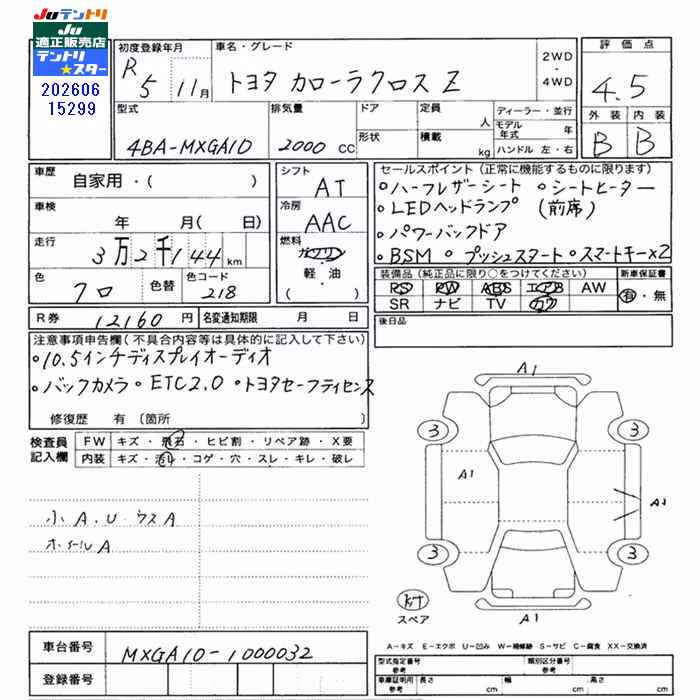 JUテントリ
JU
適正販売店
テントリ
★スター
202606
15299
初度登録年月
R5 11月
車名・グレード
トヨタ カローラクロス Z
2WD
・
4WD
評価点
4.5
外装 内装
B B
型式
4BA-MXGA10
排気量
2000 CC
ドア
形状
定員 人
積載 kg
ディーラー・並行
モデル年式 年
ハンドル 左・右
車歴
自家用・( )
車検
年 月( 日)
走行
3万2千144km
色
クロ
色替
色コード
218
シフト
AT
冷房
AAC
燃料
ガソリン
軽・油
( )
セールスポイント(正常に機能するものに限ります)
○ハーフレザーシート ○シートヒーター
○LEDヘッドランプ (前席)
○パワーバックドア
○BSM ○プッシュスタート ○スマートキー×2
装備品(純正品に限り○をつけてください)
PS PW ABS エアB AW
SR ナビ TV カワ
新車保証書
有・無
R券 12160円
名変通知期限 月 日
後日品
注意事項申告欄(不具合内容等は具体的に記入して下さい)
○10.5インチディスプレイオーディオ
○バックカメラ ○ETC2.0 ○トヨタセーフティセンス
修復歴 有〔箇所 〕
検査員
記入欄
FW キズ・飛石・ヒビ割・リペア跡・X要
内装 キズ・汚れ・コゲ・穴・スレ・キレ・破レ
小A.U.ウスA
ホイールA
A1
3 3
A1
A1
3 3
スペア
A1
A-キズ E-エクボ U-凹み W-補修跡 S-サビ C-腐食 XX-交換済
車台番号
MXGA10-1000032
登録番号
型式指定番号
参考
類別区分番号
参考
車庫証明用
参考
長さ cm
幅 cm
高さ cm